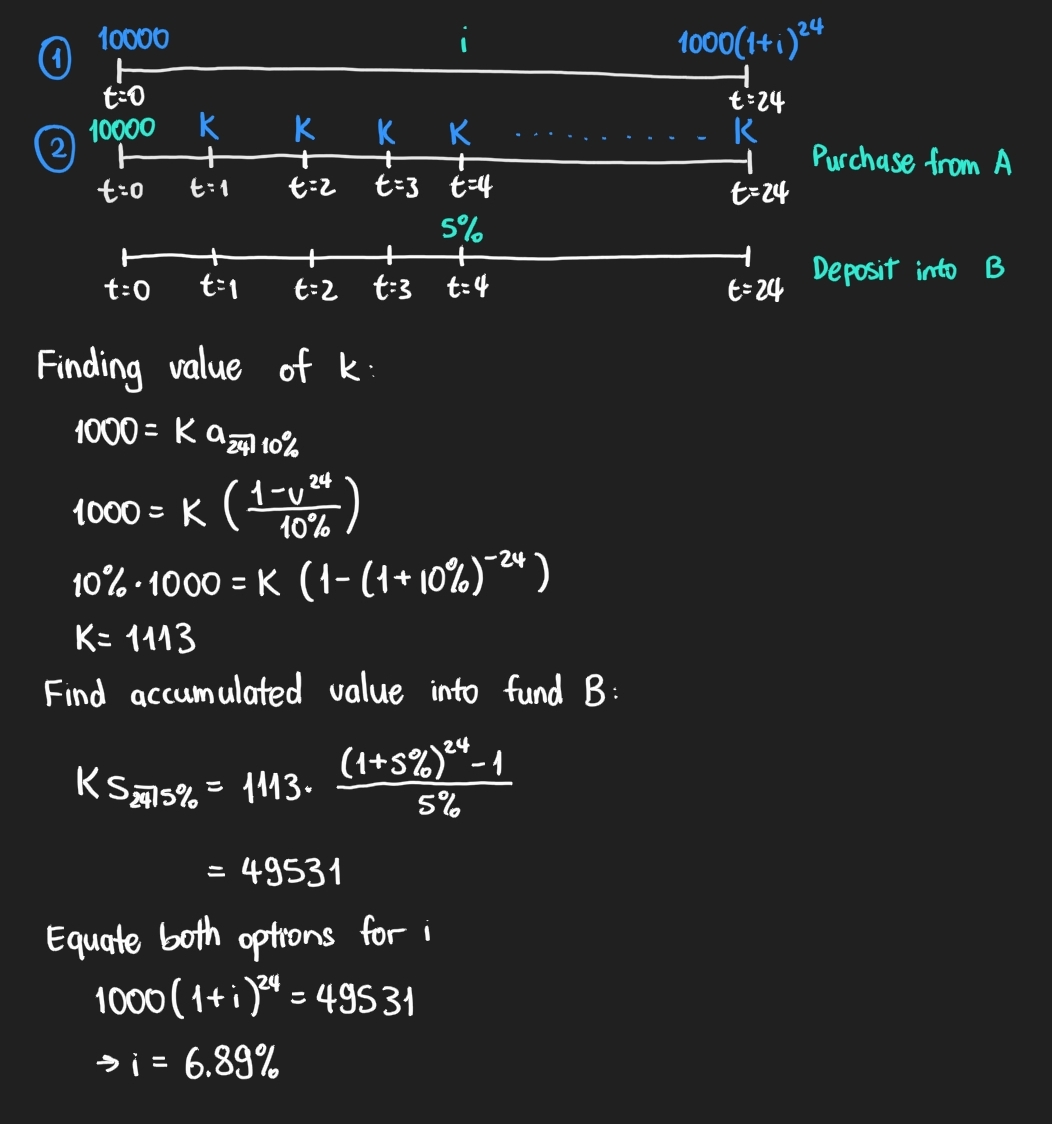 ① 10000 i 1000(1+i)^24
t=0 t=24
② 10000 K K K K ............ K
Purchase from A
t=0 t=1 t=2 t=3 t=4 t=24
5%
Deposit into B
t=0 t=1 t=2 t=3 t=4 t=24
Finding value of k:
1000 = K a_24⌉10%
1000 = K ( (1-v^24)/10% )
10%·1000 = K (1-(1+10%)^-24)
K= 1113
Find accumulated value into fund B:
K S_24⌉5% = 1113· ((1+5%)^24-1)/5%
= 49531
Equate both options for i
1000(1+i)^24 = 49531
→ i = 6.89%